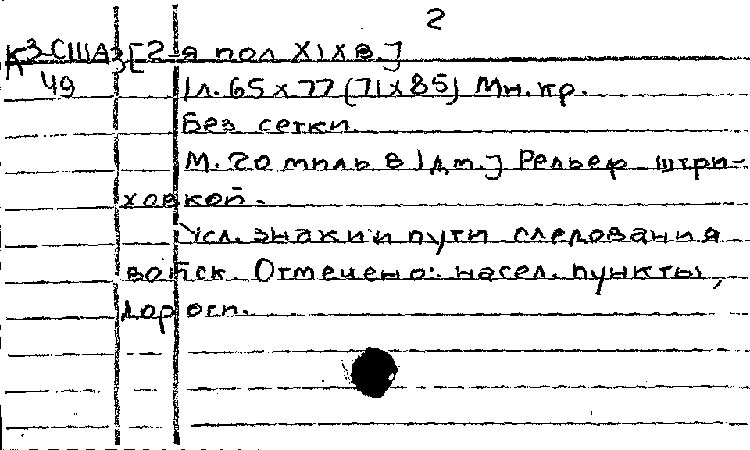 2
К 3-США 3 [2-я пол XIX в.]
49 1 л. 65 х 77 (71 х 85) Мн. кр.
Без сетки.
М. 20 миль в 1 дм.] Рельеф штри-
ховкой.
Усл. знаки и пути следования
войск. Отмечено: насел. пункты,
дороги.